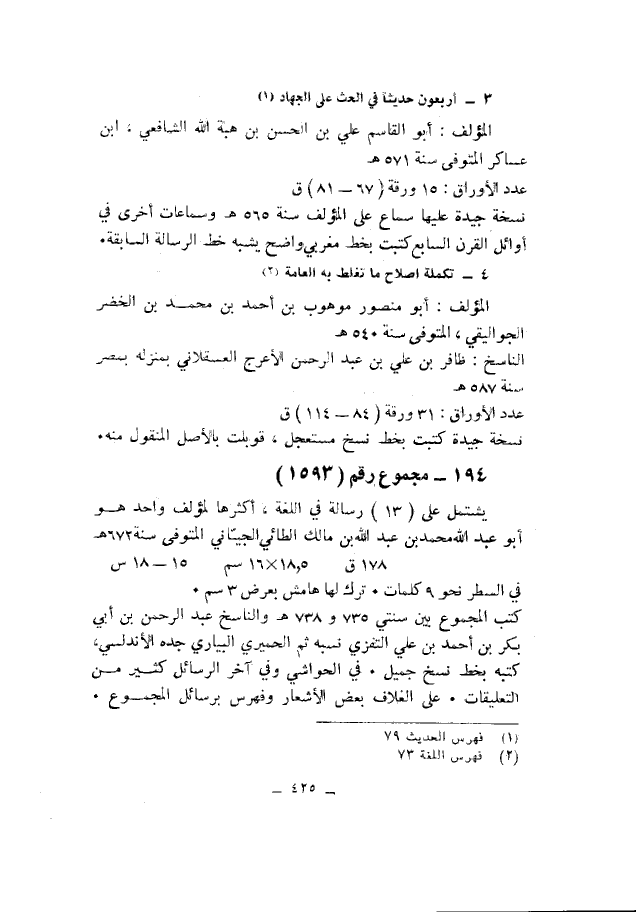 ٣ — أربعون حديثاً في الحث على الجهاد (١)
المؤلف : أبو القاسم علي بن الحسن بن هبة الله الشافعي ، ابن
عساكر المتوفى سنة ٥٧١ هـ
عدد الأوراق : ١٥ ورقة ( ٦٧ — ٨١ ) ق
نسخة جيدة عليها سماع على المؤلف سنة ٥٦٥ هـ وسماعات أخرى في
أوائل القرن السابع كتبت بخط مغربي واضح يشبه خط الرسالة السابقة.
٤ — تكملة اصلاح ما تغلط به العامة (٢)
المؤلف : أبو منصور موهوب بن أحمد بن محمــد بن الخضر
الجواليقي ، المتوفى سنة ٥٤٠ هـ
الناسخ : ظافر بن علي بن عبد الرحمن الأعرج العسقلاني بمنزله بمصر
سنة ٥٨٧ هـ
عدد الأوراق : ٣١ ورقة ( ٨٤ — ١١٤ ) ق
نسخة جيدة كتبت بخط نسخ مستعجل ، قوبلت بالأصل المنقول منه.
١٩٤ — مجموع رقم ( ١٥٩٣ )
يشتمل على ( ١٣ ) رسالة في اللغة ، أكثرها لمؤلف واحد هــو
أبو عبد الله محمد بن عبد الله بن مالك الطائي الجيّاني المتوفى سنة ٦٧٢هـ
١٧٨ ق ١٨,٥×١٦ سم ١٥ — ١٨ س
في السطر نحو ٩ كلمات . ترك لها هامش بعرض ٣ سم .
كتب المجموع بين سنتي ٧٣٥ و ٧٣٨ هـ والناسخ عبد الرحمن بن أبي
بكر بن أحمد بن علي التفزي نسبه ثم الحميري البياري جده الأندلسي،
كتبه بخط نسخ جميل . في الحواشي وفي آخر الرسائل كثير مــن
التعليقات . على الغلاف بعض الأشعار وفهرس برسائل المجمــوع .
(١) فهرس الحديث ٧٩
(٢) فهرس اللغة ٧٣
— ٤٢٥ —